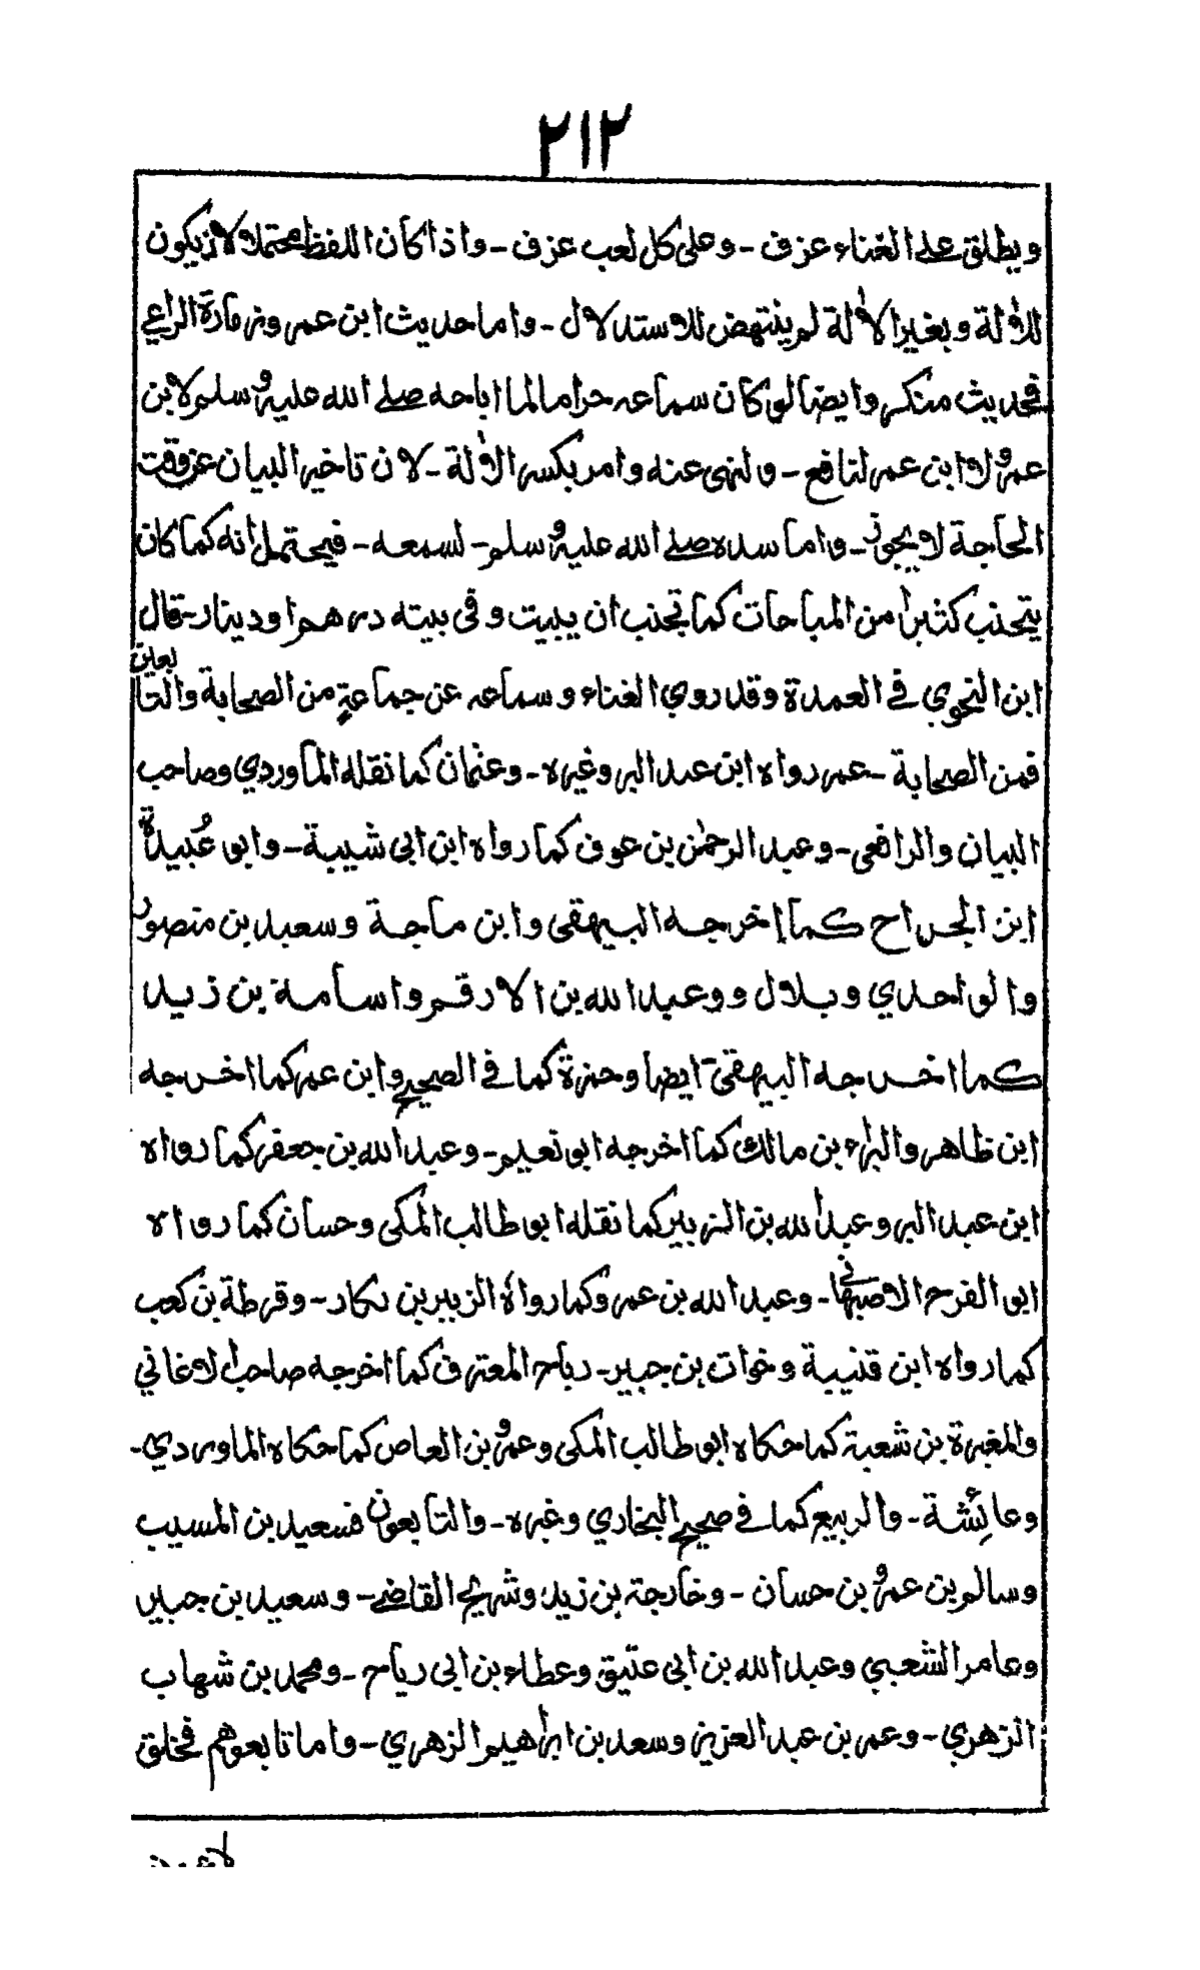 ٢١٢
ويطلق على الغناء عزف - وعلى كل لعب عزف - واذا كان اللفظ محتملا لان يكون
للألة وبغير الألة لم ينتهض للاستدلال - واما حديث ابن عمر وزمارة الراعي
فحديث منكر وايضا لو كان سماعه حراما لما اباحه صلے الله عليه وسلم لابن
عمر ولا ابن عمر لنافع - ولنهى عنه وامر بكسر الألة - لان تاخير البيان عن وقت
الحاجة لا يجوز - واما سده صلے الله عليه وسلم - لسمعه - فيحتمل انه كما كان
يتجنب كثيرا من المباحات كما تجنب ان يبيت وفى بيته درهم او دينار - قال
ابن النحوي في العمدة وقد روي الغناء وسماعه عن جماعةٍ من الصحابة والتابعين
فمن الصحابة - عمر رواه ابن عبد البر وغيره - وعثمان كما نقله الماوردي وصاحب
البيان والرافعى - وعبد الرحمٰن بن عوف كما رواه ابن ابى شيبة - وابو عُبيدة
ابن الجراح كما إخرجه البيهقى وابن ماجة وسعيد بن منصور
والواحدي وبلال ووعبد الله بن الارقم واسامة بن زيد
كما اخرجه البيهقى ايضا وحمزة كما في الصحيح وابن عمر كما اخرجه
ابن طاهر والبراء بن مالك كما اخرجه ابو نعيم - وعبد الله بن جعفر كما رواه
ابن عبد البر وعبد الله بن الزبير كما نقله ابو طالب المكى وحسان كما رواه
ابو الفرح الاصبهانى - وعبد الله بن عمرو كما رواه الزبير بن بكار - وقرطة بن كعب
كما رواه ابن قتيبة وخوات بن جبير - رباح المعترف كما اخرجه صاحب الاغاني
والمغيرة بن شعبة كما حكاه ابو طالب المكى وعمرو بن العاص كما حكاه الماوردي -
وعائِشة - والربيع كما في صحيح البخاري وغيره - والتابعون فسعيد بن المسيب
وسالم بن عمرو بن حسان - وخارجة بن زيد وشريح القاضے - وسعيد بن جبير
وعامر الشعبي وعبد الله بن ابى عتيق وعطاء بن ابى رباح - ومحمد بن شهاب
الزهري - وعمر بن عبد العزيز وسعد بن ابراهيم الزهري - واما تابعوهم فخلق